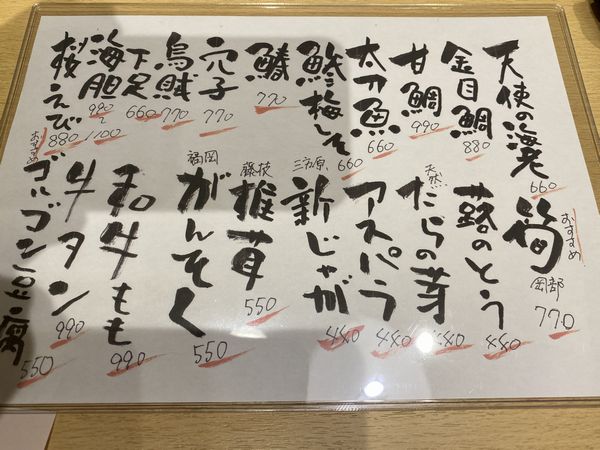 天使の海老
660
金目鯛
880
甘鯛
990
太刀魚
660
鯵梅しそ
660
鰆
770
穴子
770
烏賊
770
下足
660
海胆
990
〜
1100
桜えび
おすすめ
880
おすすめ
筍
岡部
770
蕗のとう
440
天然
たらの芽
440
アスパラ
440
三方原
新じゃが
440
藤枝
椎茸
550
福岡
がんそく
550
和牛もも
990
牛タン
990
ゴルゴン豆腐
550